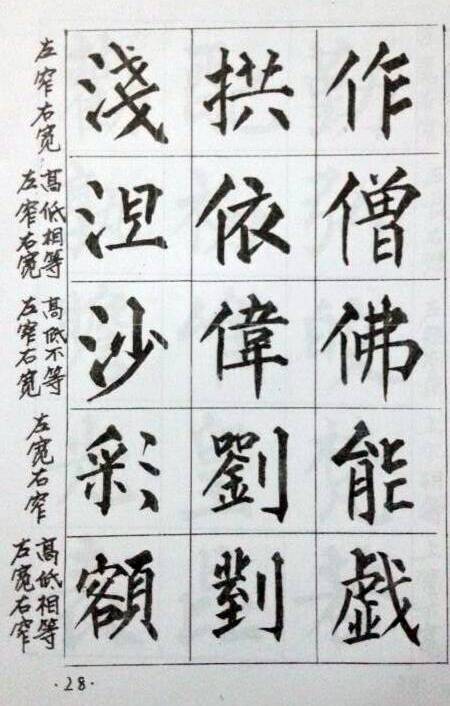 左窄右宽
淺拱作
高低相等
左窄右宽
涅依僧
高低不等
左窄右宽
沙偉佛
左宽右窄
彩劉能
高低相等
左宽右窄
額戯
·28·